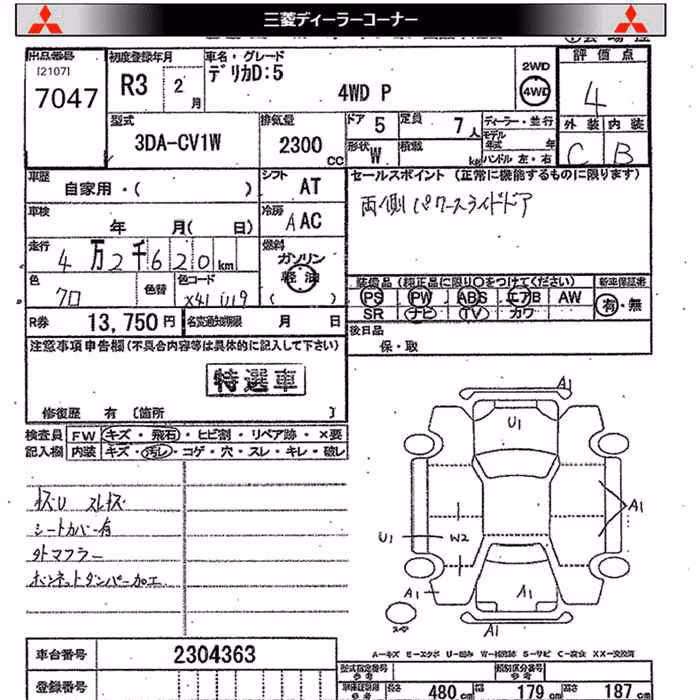 三菱ディーラーコーナー
出品番号
[2107]
7047
初度登録年月
R3 2月
車名・グレード
デリカD:5
4WD P
2WD
4WD
評価点
4
外装 内装
C B
型式
3DA-CV1W
排気量
2300 CC
ドア 5
定員 7人
形状 W
積載 kg
ディーラー・並行
モデル年式 年
ハンドル 左・右
車歴
自家用・( )
シフト AT
セールスポイント (正常に機能するものに限ります)
両側パワースライドドア
車検
年 月( 日)
冷房 A AC
走行
4万2千620km
燃料
ガソリン
軽油
( )
色
クロ
色替
色コード
X41 U19
装備品 (純正品に限り○をつけてください)
新車保証書
PS PW ABS エアB AW
SR ナビ TV カワ
有・無
R券 13,750円
名変通知期限 月 日
後日品
保・取
注意事項申告欄(不具合内容等は具体的に記入して下さい)
特選車
修復歴 有 [箇所 ]
検査員記入欄
FW キズ・飛石・ヒビ割・リペア跡・×要
内装 キズ・汚し・コゲ・穴・スレ・キレ・破レ
シートカバー有
外マフラー
ボンネットダンパー加工
A1
U1
A1
U1
W2
A1
A1
A1
スペア
A-キズ E-エクボ U-凹み W-補修跡 S-サビ C-腐食 XX-交換済
車台番号 2304363
登録番号
型式指定番号
参考
類別区分番号
参考
長さ 480cm
幅 179cm
高さ 187cm